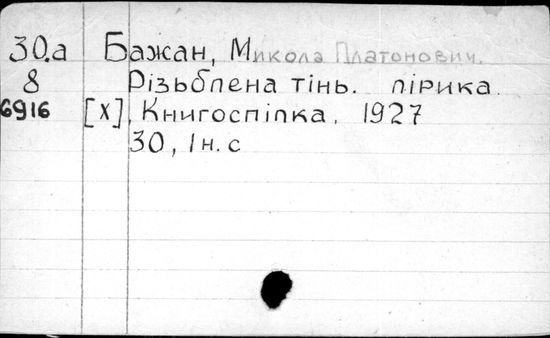 30.а Бажан, Микола Платонович.
8 Різьблена тінь. лірика.
6916 [Х], Книгоспілка, 1927
30, 1н. с